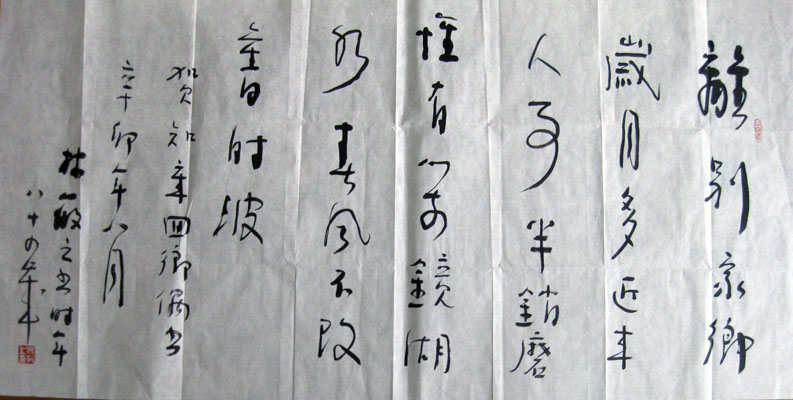 離別家鄉
歲月多近来
人事半銷磨
惟有门前鏡湖
水春風不改
舊时波
贺知章回鄉偶书
辛卯年八月
林之书时年
八十四歲